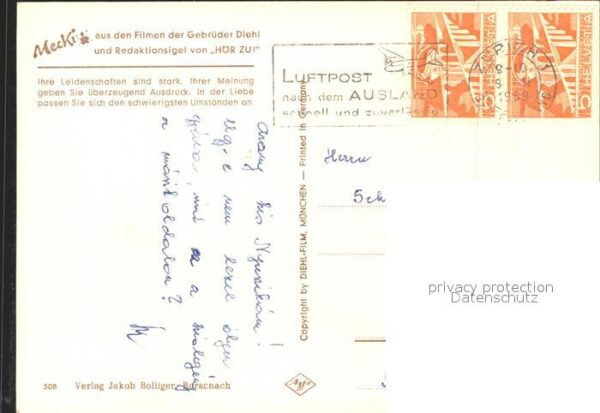 Mecki
aus den Filmen der Gebrüder Diehl
und Redaktionsigel von „HÖR ZU!"
Ihre Leidenschaften sind stark. Ihrer Meinung
geben Sie überzeugend Ausdruck. In der Liebe
passen Sie sich den schwierigsten Umständen an.
LUFTPOST
nach dem AUSLAND
schnell und zuverlässig
HELVETIA
5
5
Arany kis
nem leszel olyan
mint a
a másik oldalon?
Copyright by DIEHL-FILM, MÜNCHEN — Printed in Germany
Herrn
Sch
privacy protection
Datenschutz
508 Verlag Jakob Bolliger, Rorschach